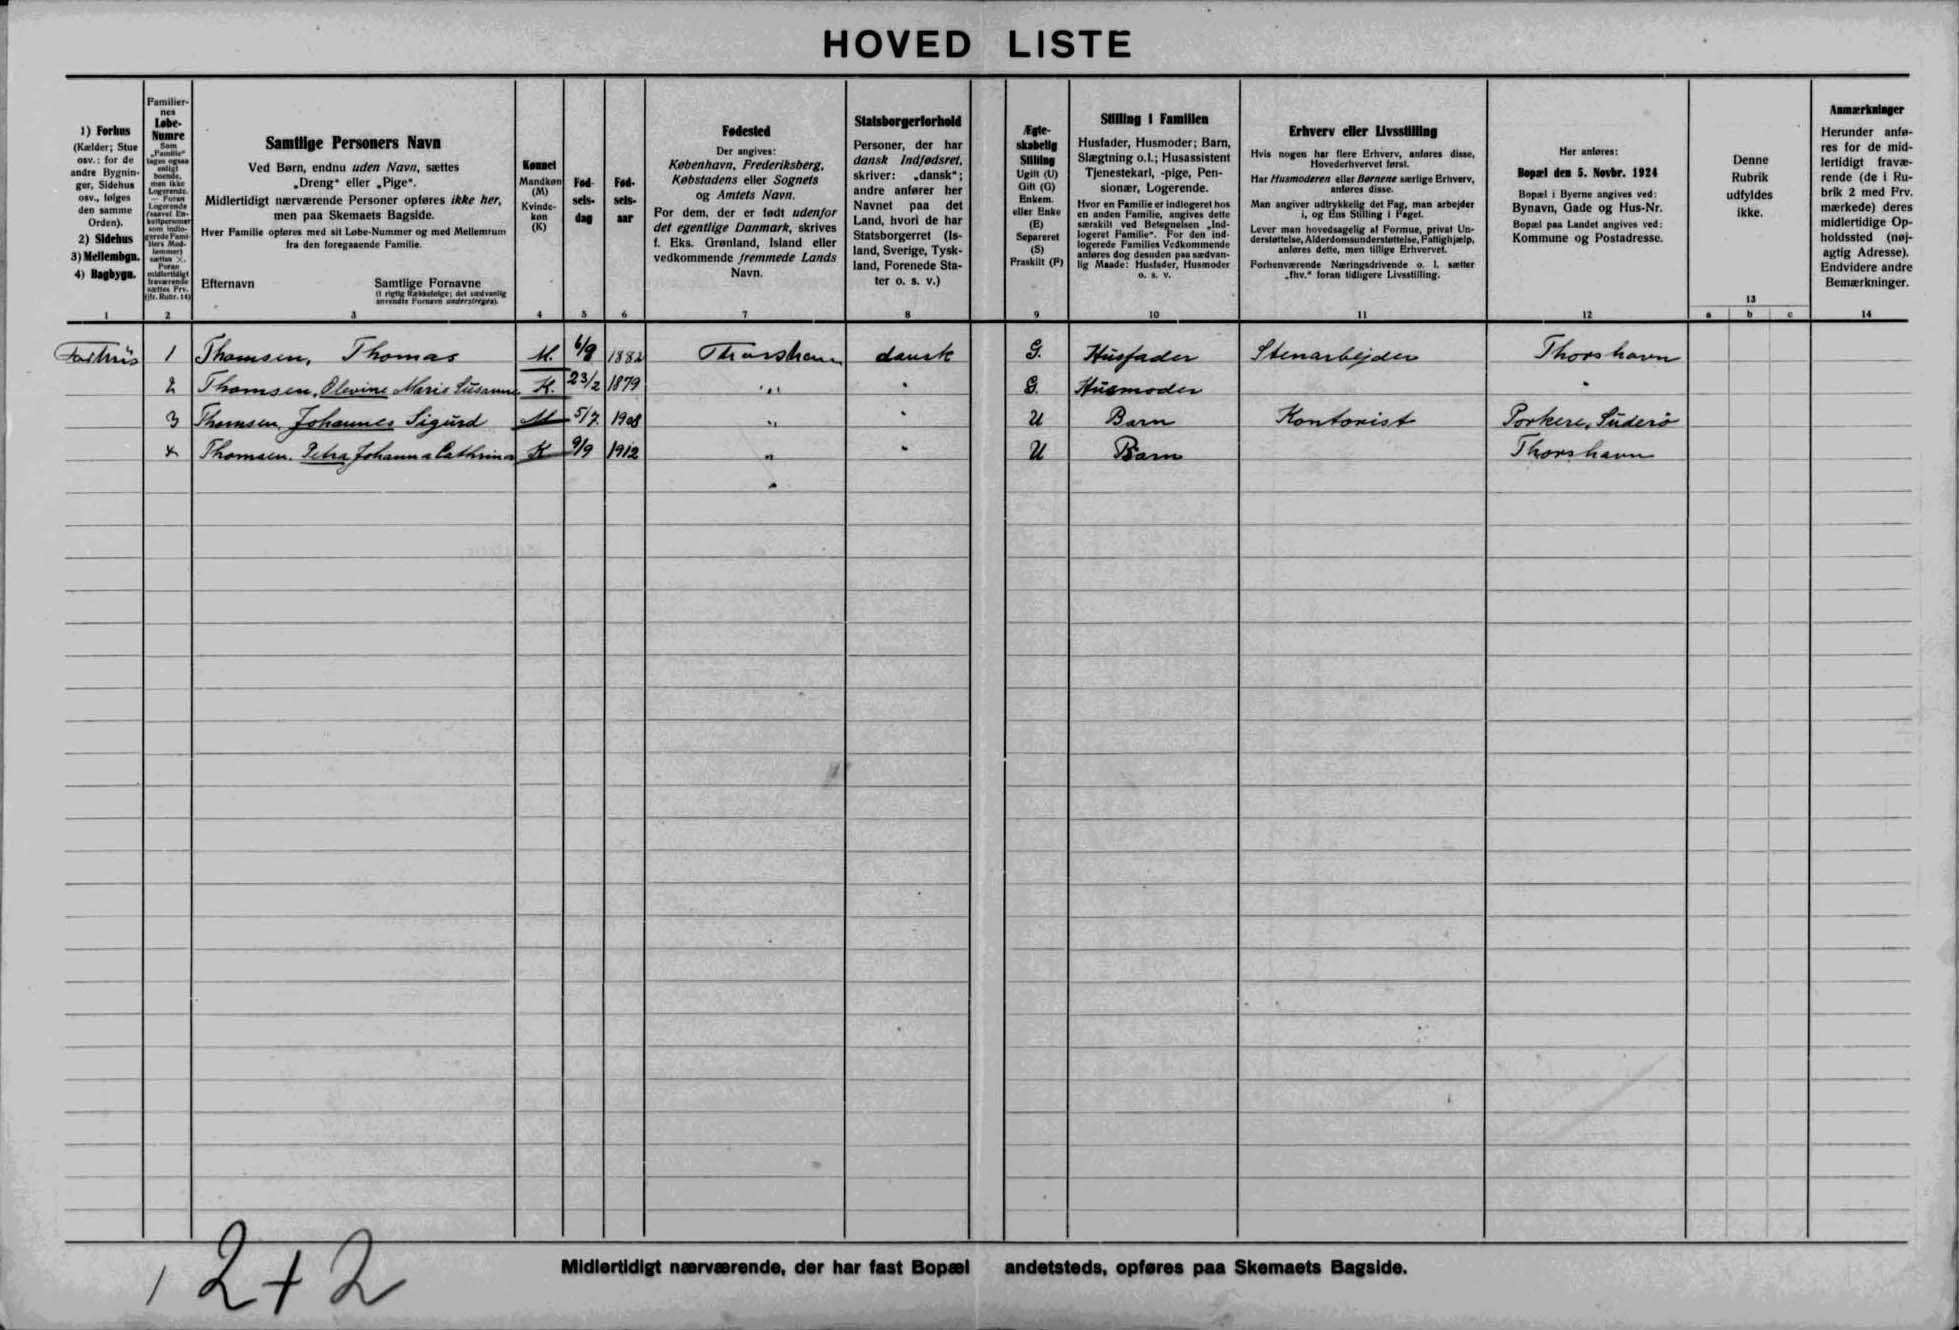 HOVED LISTE
1) Forhus
(Kælder; Stue
osv.: for de
andre Bygnin-
ger, Sidehus
osv., følges
den samme
Orden).
2) Sidehus
3) Mellembgn.
4) Bagbygn.
1
Familier-
nes
Løbe-
Numre
2
Samtlige Personers Navn
Ved Børn, endnu uden Navn, sættes
„Dreng“ eller „Pige“.
Midlertidigt nærværende Personer opføres ikke her,
men paa Skemaets Bagside.
Hver Familie opføres med sit Løbe-Nummer og med Mellemrum
fra den foregaaende Familie.
Efternavn Samtlige Fornavne
(i rigtig Rækkefølge; det sædvanlig
anvendte Fornavn understreges).
3
Kønnet
Mandkøn
(M)
Kvinde-
køn
(K)
4
Fød-
sels-
dag
5
Fød-
sels-
aar
6
Fødested
Der angives:
København, Frederiksberg,
Købstadens eller Sognets
og Amtets Navn.
For dem, der er født udenfor
det egentlige Danmark, skrives
f. Eks. Grønland, Island eller
vedkommende fremmede Lands
Navn.
7
Statsborgerforhold
Personer, der har
dansk Indfødsret,
skriver: „dansk“;
andre anfører her
Navnet paa det
Land, hvori de har
Statsborgerret (Is-
land, Sverige, Tysk-
land, Forenede Sta-
ter o. s. v.)
8
Ægte-
skabelig
Stilling
Ugift (U)
Gift (G)
Enkem.
eller Enke
(E)
Separeret
(S)
Fraskilt (F)
9
Stilling i Familien
Husfader, Husmoder; Barn,
Slægtning o.l.; Husassistent
Tjenestekarl, -pige, Pen-
sionær, Logerende.
Hvor en Familie er indlogeret hos
en anden Familie, angives dette
særskilt ved Betegnelsen „Ind-
logeret Familie“. For den ind-
logerede Families Vedkommende
anføres dog desuden paa sædvan-
lig Maade: Husfader, Husmoder
o. s. v.
10
Erhverv eller Livsstilling
Hvis nogen har flere Erhverv, anføres disse,
Hovederhvervet først.
Har Husmoderen eller Børnene særlige Erhverv,
anføres disse.
Man angiver udtrykkelig det Fag, man arbejder
i, og Ens Stilling i Faget.
Lever man hovedsagelig af Formue, privat Un-
derstøttelse, Alderdomsunderstøttelse, Fattighjælp,
anføres dette, men tillige Erhvervet.
Forhenværende Næringsdrivende o. l. sætter
„fhv.“ foran tidligere Livsstilling.
11
Her anføres:
Bopæl den 5. Novbr. 1924
Bopæl i Byerne angives ved:
Bynavn, Gade og Hus-Nr.
Bopæl paa Landet angives ved:
Kommune og Postadresse.
12
Denne
Rubrik
udfyldes
ikke.
13
a b c
Anmærkninger
Herunder anfø-
res for de mid-
lertidigt fravæ-
rende (de i Ru-
brik 2 med Frv.
mærkede) deres
midlertidige Op-
holdssted (nøj-
agtig Adresse).
Endvidere andre
Bemærkninger.
14
Forhus 1 Thomsen, Thomas M. 6/8 1882 Thorshavn dansk G. Husfader Stenarbejder Thorshavn
2 Thomsen, Olevine Marie Susanne K. 23/2 1879 " " G. Husmoder "
3 Thomsen Johannes Sigurd M 5/7 1908 " " U Barn Kontorist Porkere, Suderø
4 Thomsen. Petra Johanna Cathrina K 9/9 1912 " " U Barn Thorshavn
1 2+2
Midlertidigt nærværende, der har fast Bopæl andetsteds, opføres paa Skemaets Bagside.